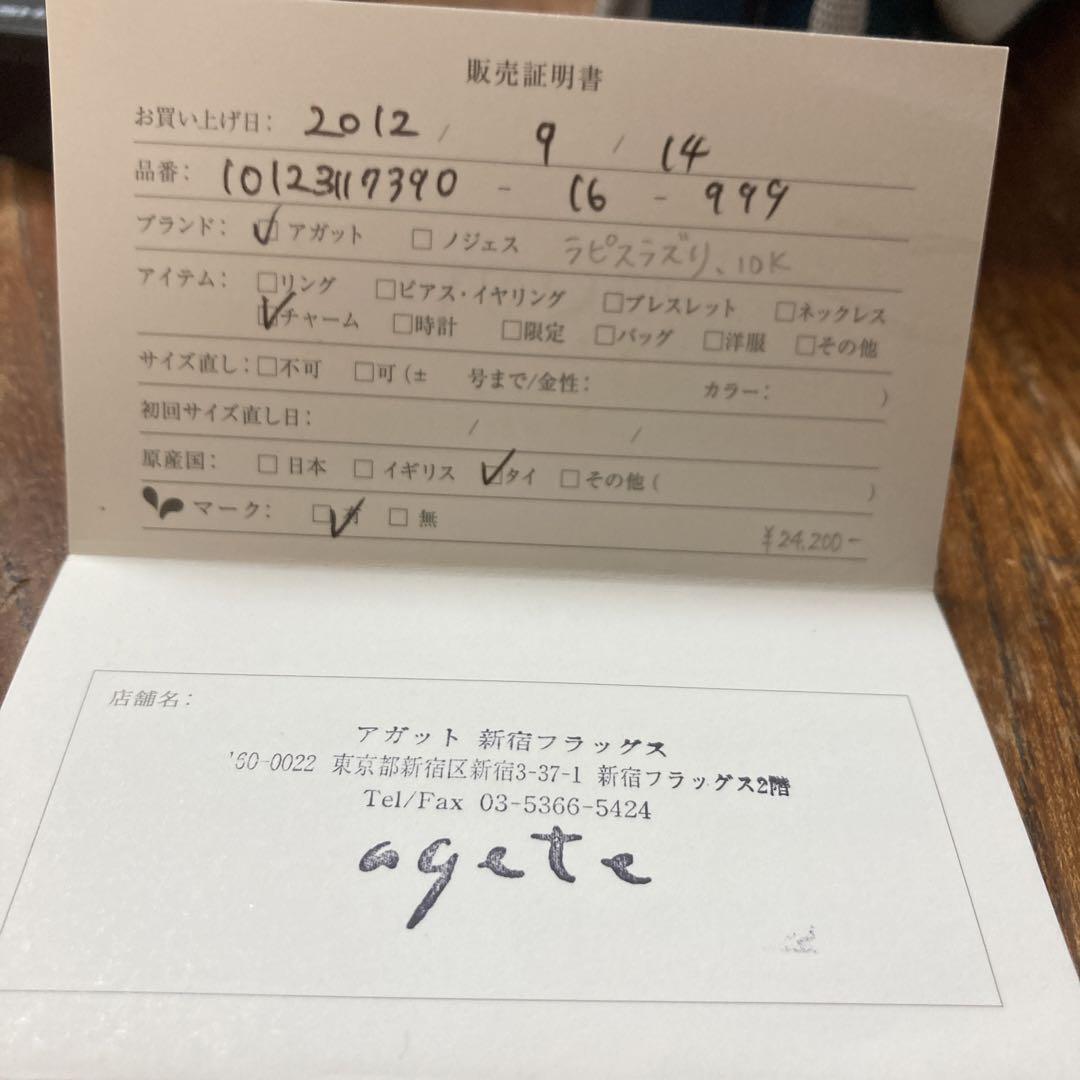 販売証明書
お買い上げ日: 2012 / 9 / 14
品番: 10123117390 - 16 - 999
ブランド: ☑ アガット □ ノジェス ラピスラズリ、10K
アイテム: □リング □ピアス・イヤリング □ブレスレット □ネックレス
☑チャーム □時計 □限定 □バッグ □洋服 □その他
サイズ直し: □不可 □可 (± 号まで/金性: カラー: )
初回サイズ直し日: / /
原産国: □ 日本 □ イギリス ☑タイ □その他 ( )
マーク: ☑有 □ 無
¥24,200-
店舗名:
アガット 新宿フラッグス
'60-0022 東京都新宿区新宿3-37-1 新宿フラッグス2階
Tel/Fax 03-5366-5424
agete